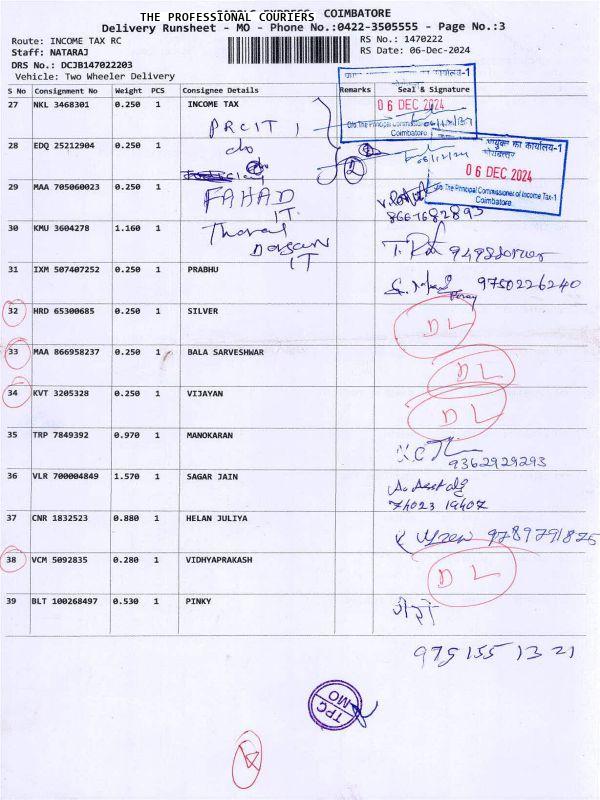 THE PROFESSIONAL COURIERS COIMBATORE
Delivery Runsheet - MO - Phone No.:0422-3505555 - Page No.:3
Route: INCOME TAX RC
RS No.: 1470222
Staff: NATARAJ
RS Date: 06-Dec-2024
DRS No.: DCJB147022203
Vehicle: Two Wheeler Delivery
S No Consignment No Weight PCS Consignee Details Remarks Seal & Signature
27 NKL 3468301 0.250 1 INCOME TAX
PRCIT 1
06 DEC 2024
O/o The Principal Commissioner of Income Tax-1
Coimbatore
28 EDQ 25212904 0.250 1
do
2
आयुक्त का कार्यालय-1
06 DEC 2024
O/o The Principal Commissioner of Income Tax-1
Coimbatore
29 MAA 705060023 0.250 1
FAHAD
IT.
8667682893
30 KMU 3604278 1.160 1
IT
31 IXM 507407252 0.250 1 PRABHU
9750226240
32 HRD 65300685 0.250 1 SILVER
DL
33 MAA 866958237 0.250 1 BALA SARVESHWAR
DL
34 KVT 3205328 0.250 1 VIJAYAN
DL
35 TRP 7849392 0.970 1 MANOKARAN
9362929293
36 VLR 700004849 1.570 1 SAGAR JAIN
74023 19407
37 CNR 1832523 0.880 1 HELAN JULIYA
9789791875
38 VCM 5092835 0.280 1 VIDHYAPRAKASH
DL
39 BLT 100268497 0.530 1 PINKY
975 155 13 21
TPC
MO